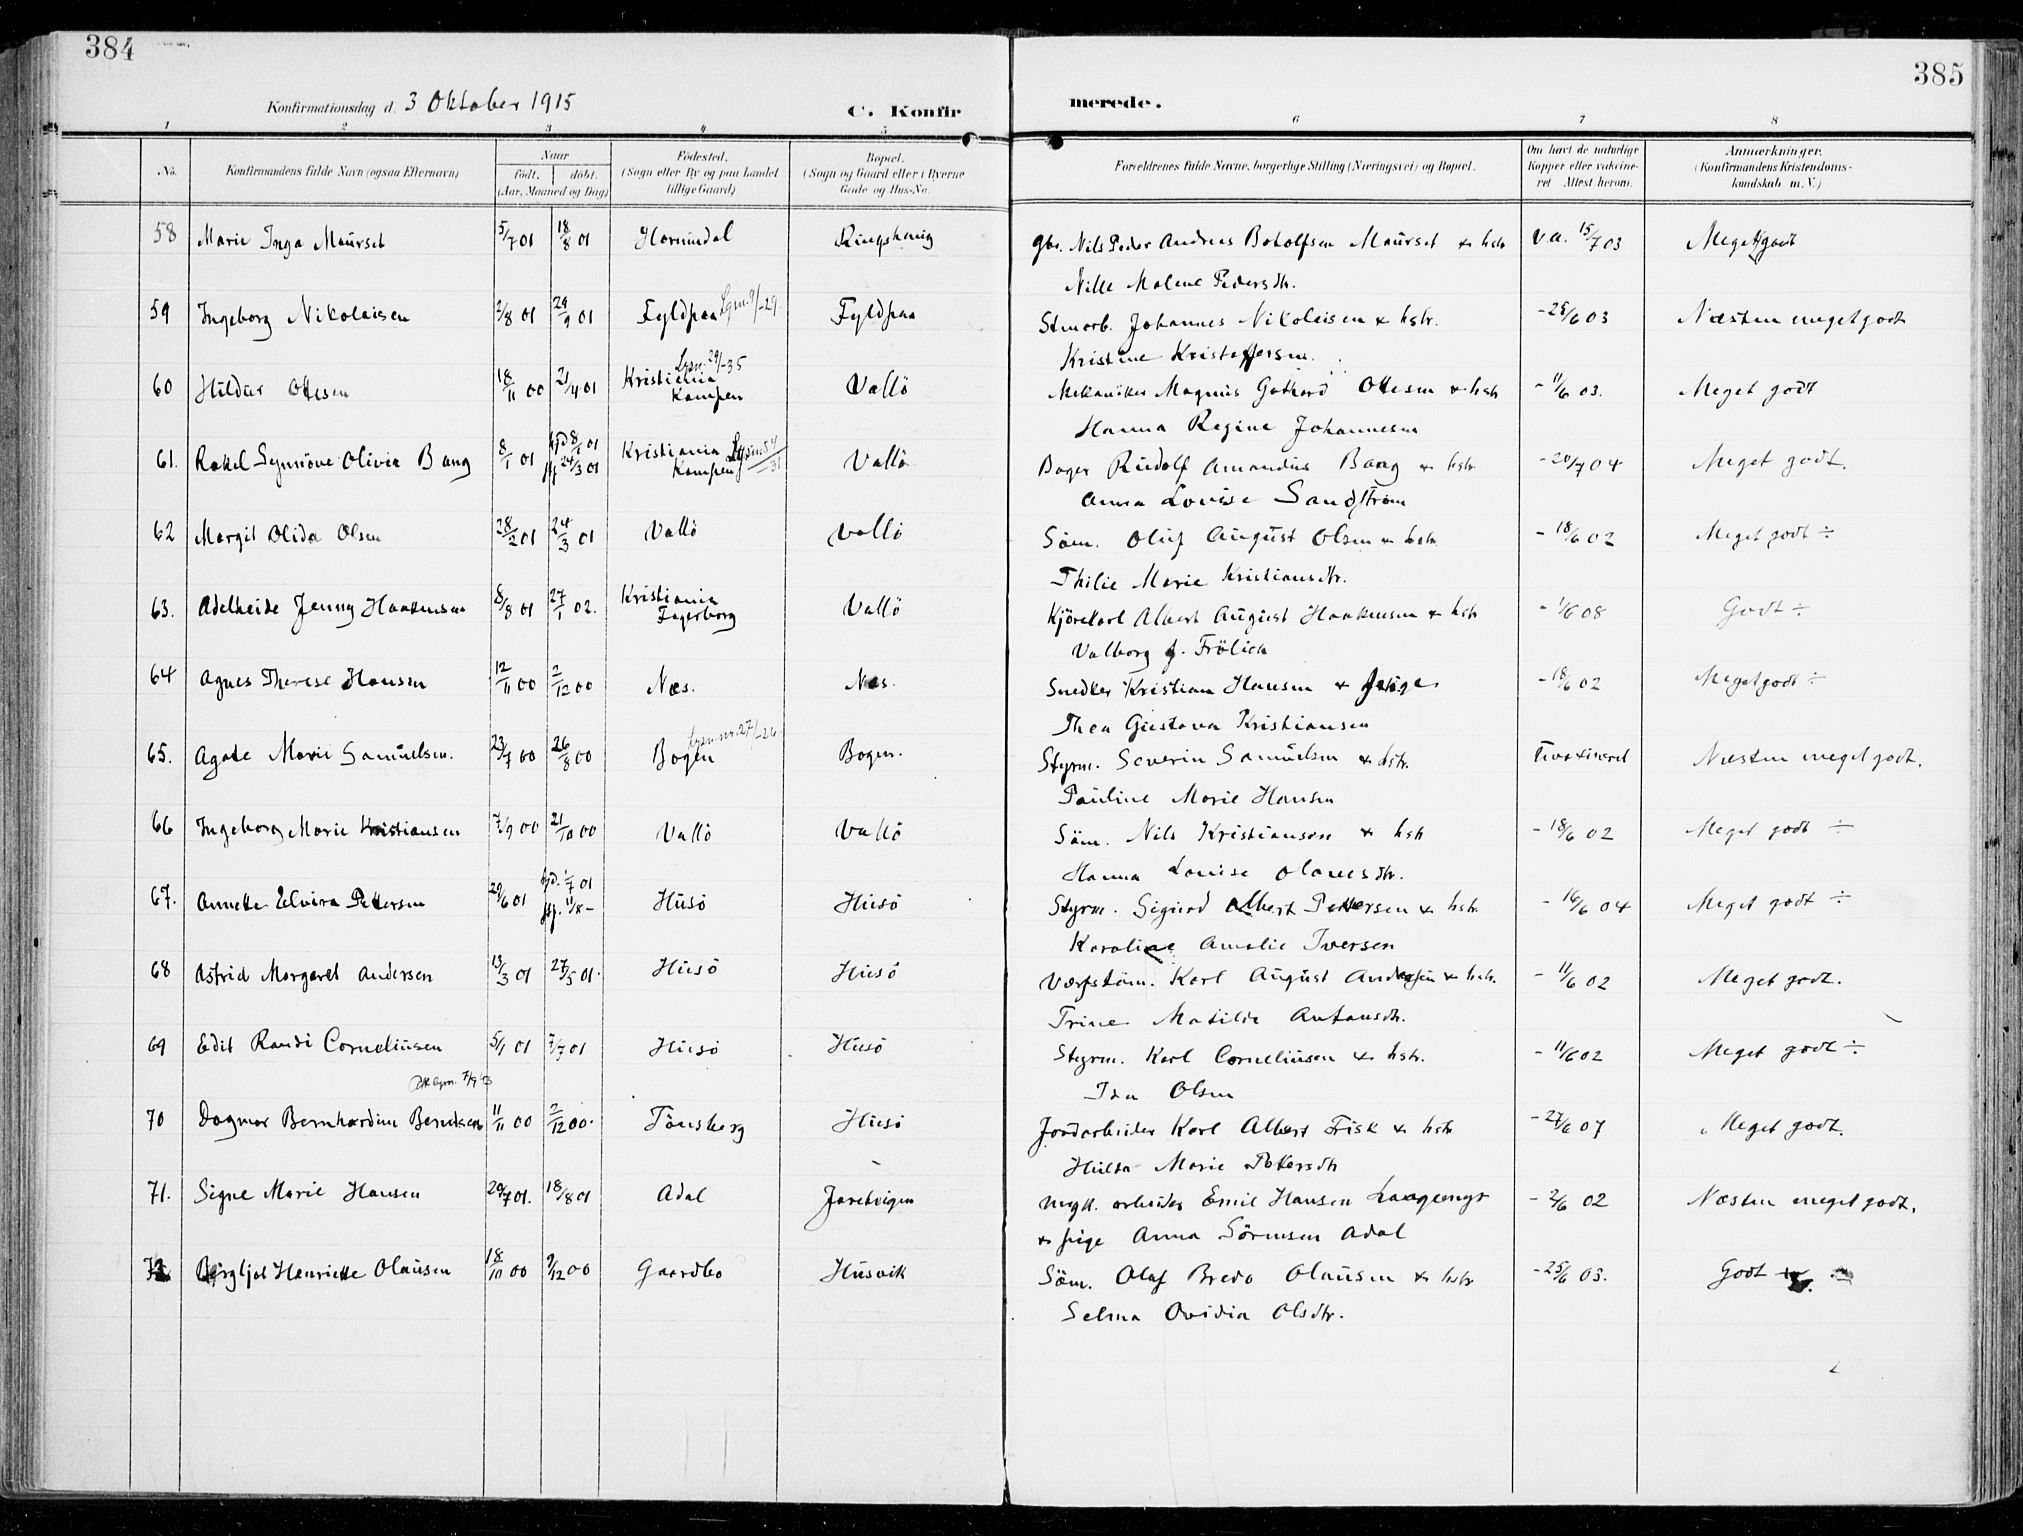 384
385
Konfirmationsdag d. 3 Oktober 1915
C. Konfir
merede.
1 2 3 4 5 6 7 8
No.
Konfirmandens fulde Navn (ogsaa Efternavn)
Naar
født. døbt.
(Aar, Maaned og Dag)
Fødested.
(Sogn eller By og paa Landet
tillige Gaard)
Bopæl.
(Sogn og Gaard eller i Byerne
Gade og Hus-No.
Forældrenes fulde Navne, borgerlige Stilling (Næringsvei) og Bopæl.
Om havt de naturlige
Kopper eller vakcine-
ret Attest herom.
Anmærkninger.
(Konfirmandens Kristendoms-
kundskab m. V.)
58 Marie Inga Maurset 5/7 01 18/8 01 Hornindal Ringshaug Gbr. Nils Peder Andreas Botolfsen Maurset & hstr V.a. 15/7 03 Meget godt
Nille Malene Pedersdtr.
59 Ingeborg Nikolaisen 2/8 01 29/9 01 Fyldpaa Fyldpaa Stenarb. Johannes Nikolaisen & hstr. - 25/6 03 Næsten meget godt
Kristine Kristoffersen.
Lysn. 29/-35
60 Hildur Ottesen 18/11 00 21/4 01 Kristiania Kampen Vallö Mekaniker Magnus Gothard Ottesen & hstr - 11/6 03. Meget godt
Hanna Regine Johannesen
61. Rakel Synnöve Olivia Bang 8/1 01 hjd 8/1 01 24/3 01 Kristiania Kampen Vallö Bager Rudolf Amandus Bang & hstr - 20/7 04 Meget godt.
Anna Lovise Sandström
62 Margit Olida Olsen 28/2 01 24/3 01 Vallö Vallö Söm. Oluf August Olsen & hstr. - 18/6 02 Meget godt ÷
Thilie Marie Kristiansdtr.
63. Adelheide Jenny Haakensen 8/8 01 27/1 02. Kristiania Fagerborg Vallö Kjörekarl Albert August Haakensen & hstr - 1/6 08 Godt ÷
Valborg f. Frölich
64 Agnes Therese Hansen 12/11 00 2/12 00 Næs. Næs. Snedker Kristian Hansen & pige - 18/6 02 Meget godt ÷
Thea Gustava Kristiansen
65. Agate Marie Samuelsen. 23/7 00 26/8 00 Bogen Bogen. Styrm. Severin Samuelsen & hstr. Næsten meget godt.
Pauline Marie Hansen
66 Ingeborg Marie Kristiansen 7/9 00 21/10 00 Vallö Vallö Söm. Nils Kristiansen & hstr - 18/6 02 Meget godt ÷
Hanna Lovise Olavesdtr.
67. Annette Elvira Pettersen 29/6 01 hjd. 1/7 01 11/8 - Husö Husö Styrm. Sigurd Albert Pettersen & hstr. - 16/6 04 Meget godt ÷
Karoline Amalie Iversen
68 Astrid Margaret Andersen 13/3 01 27/5 01. Husö Husö Værftstöm. Karl August Andersen & hstr. - 11/6 02 Meget godt.
Trine Matilde Antonsdtr.
69 Edit Randi Corneliusen 5/1 01 7/7 01 Husö Husö Styrm. Karl Corneliusen & hstr. - 11/6 02 Meget godt ÷
Ida Olsen
70 Dagmar Bernhardine Berntsen 11/11 00 2/12 00. Tönsberg Husö Jordarbeider Karl Albert Frisk & hstr - 27/6 07 Meget godt.
Hulda Marie Pettersdtr
71. Signe Marie Hansen 20/7 01. 18/8 01 Adal Jareteigen Ungk. arbeider Emil Hansen Haugeengs - 2/6 02 Næsten meget godt.
& pige Anna Sörensen Adal
72 Bergljot Henriette Olausen 18/10 00 9/12 00 Gaardbo Husvik Söm. Olaf Bredo Olausen & hstr - 25/6 03. Godt
Selma Ovidia Olsdtr.